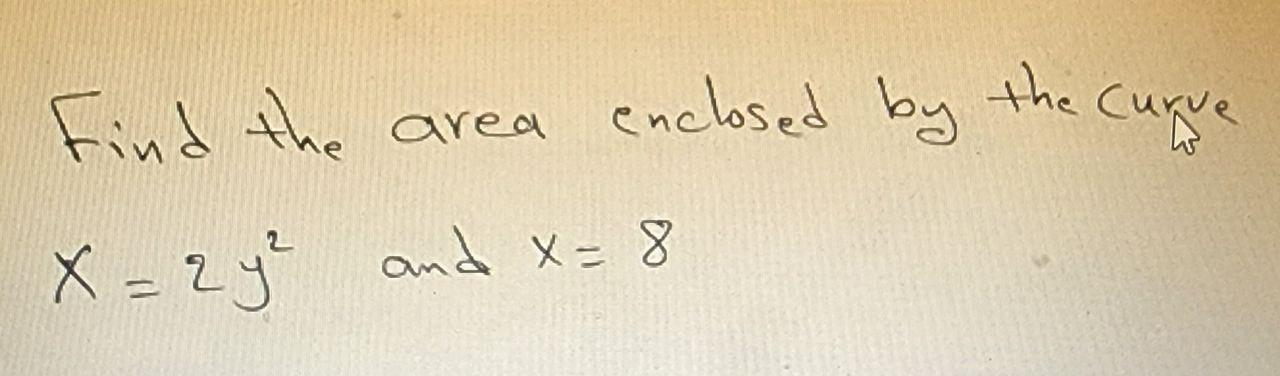 Find the area enclosed by the curve
x = 2y² and x = 8